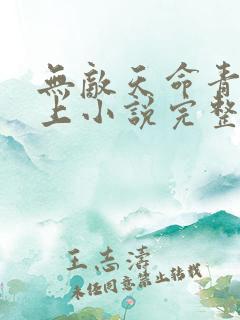 無敵天命青
上小說完整
王志濤
未经同意禁止转载